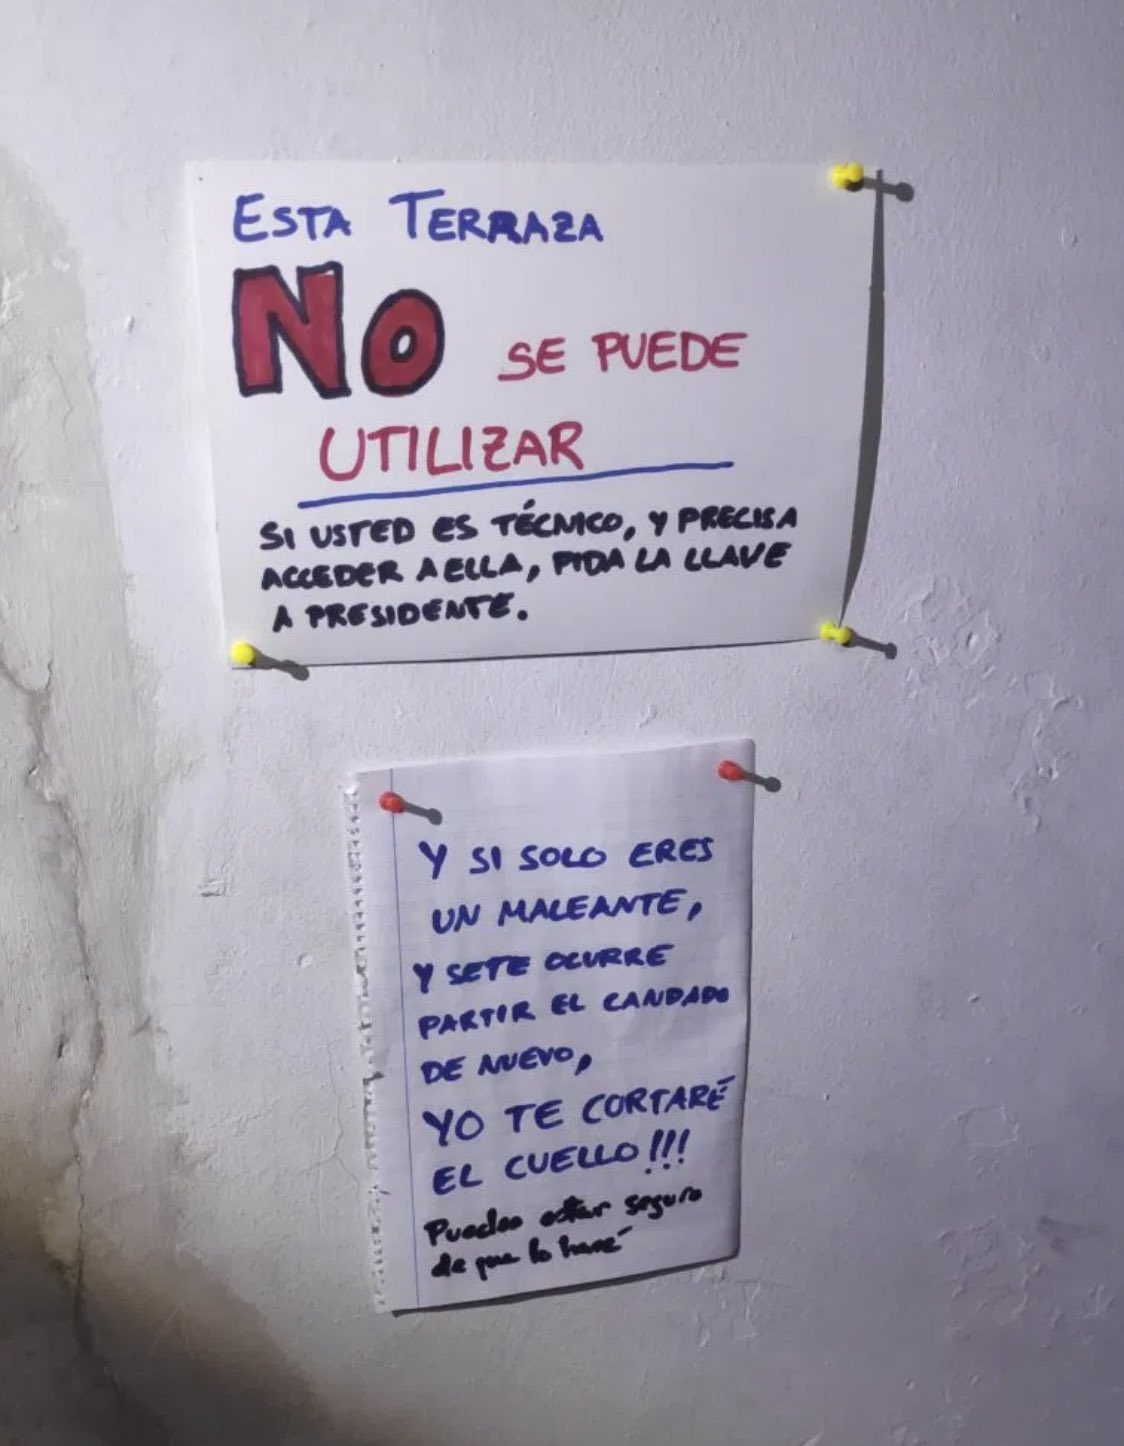 ESTA TERRAZA
NO SE PUEDE
UTILIZAR
SI USTED ES TÉCNICO, Y PRECISA
ACCEDER A ELLA, PIDA LA LLAVE
A PRESIDENTE.
Y SI SOLO ERES
UN MALEANTE,
Y SETE OCURRE
PARTIR EL CANDADO
DE NUEVO,
YO TE CORTARÉ
EL CUELLO!!!
Puedes estar seguro
de que lo haré